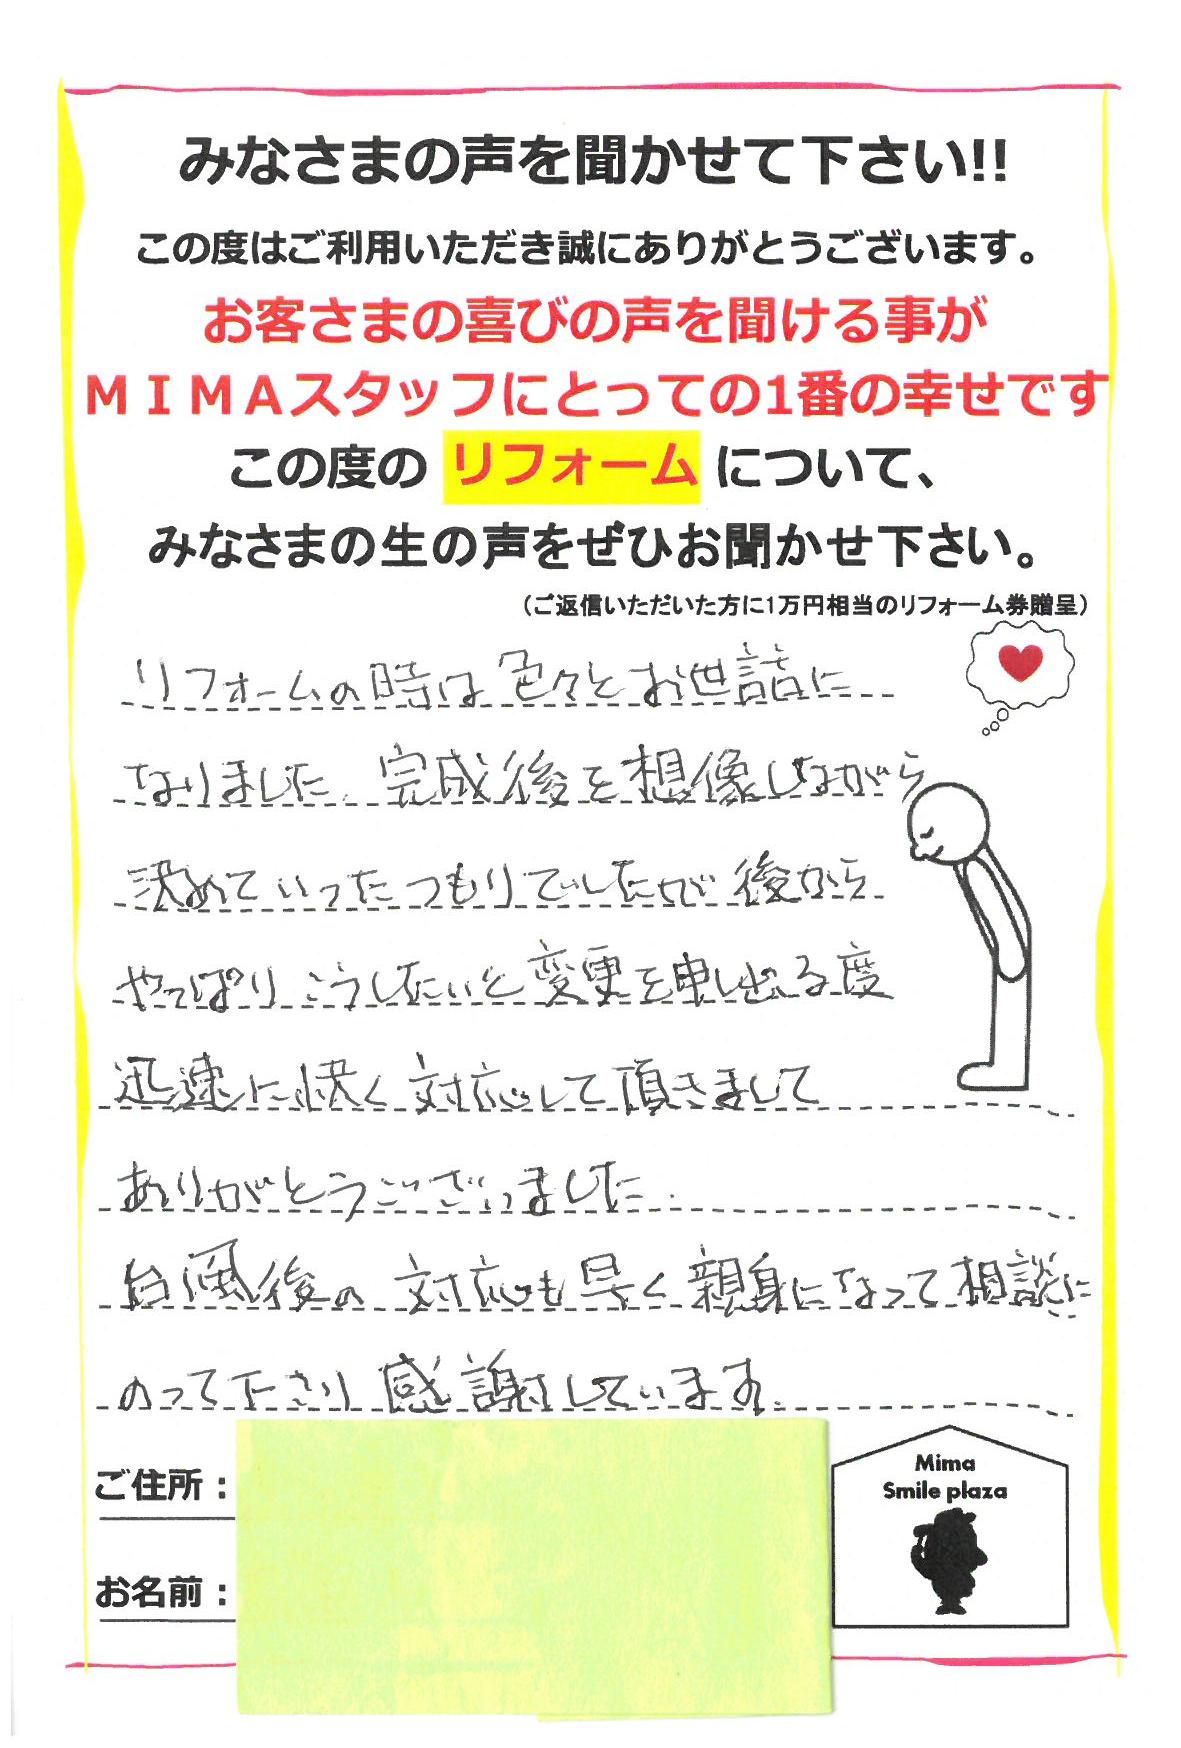 みなさまの声を聞かせて下さい!!
この度はご利用いただき誠にありがとうございます。
お客さまの喜びの声を聞ける事が
ＭＩＭＡスタッフにとっての1番の幸せです
この度の リフォーム について、
みなさまの生の声をぜひお聞かせ下さい。
（ご返信いただいた方に1万円相当のリフォーム券贈呈）
リフォームの時は色々とお世話に
なりました。完成後を想像しながら
決めていったつもりでしたが後から
やっぱりこうしたいと変更を申し出る度
迅速に快く対応して頂きまして
ありがとうございました。
台風後の対応も早く親身になって相談に
のって下さり感謝しています。
ご住所：
お名前：
Mima
Smile plaza